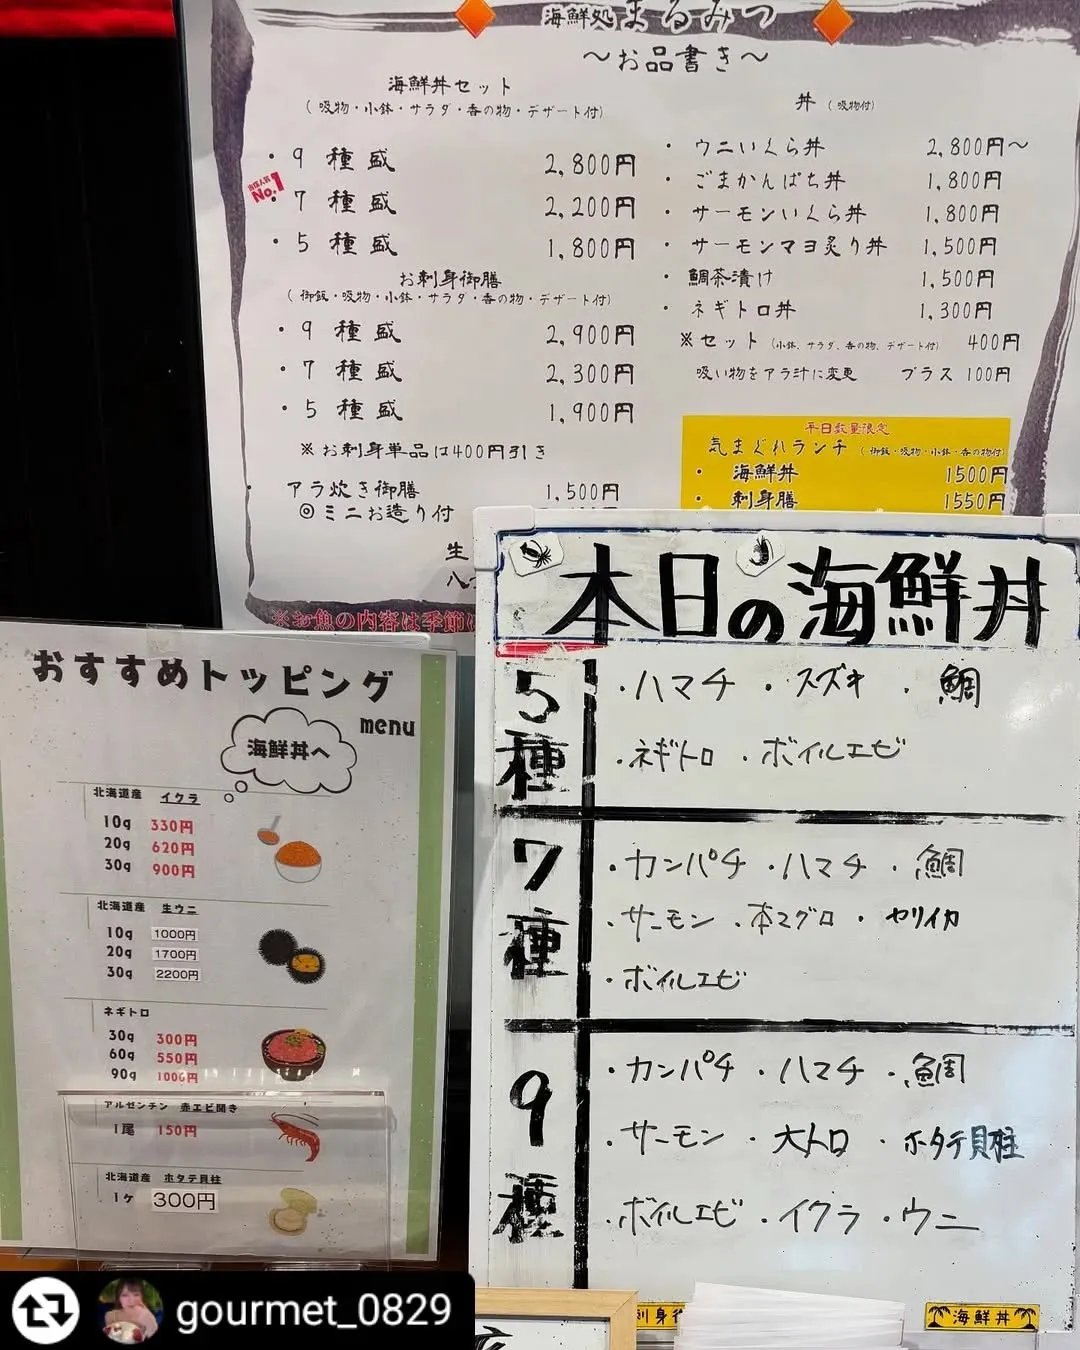 海鮮処まるみつ
～お品書き～
海鮮丼セット
（吸物・小鉢・サラダ・香の物・デザート付）
・9種盛 2,800円
当店人気No.1
・7種盛 2,200円
・5種盛 1,800円
お刺身御膳
（御飯・吸物・小鉢・サラダ・香の物・デザート付）
・9種盛 2,900円
・7種盛 2,300円
・5種盛 1,900円
※お刺身単品は400円引き
・アラ炊き御膳 1,500円
◎ミニお造り付
生
※お魚の内容は季節
丼（吸物付）
・ウニいくら丼 2,800円～
・ごまかんぱち丼 1,800円
・サーモンいくら丼 1,800円
・サーモンマヨ炙り丼 1,500円
・鯛茶漬け 1,500円
・ネギトロ丼 1,300円
※セット（小鉢、サラダ、香の物、デザート付） 400円
吸い物をアラ汁に変更 プラス 100円
平日数量限定
気まぐれランチ（御飯・吸物・小鉢・香の物付）
・海鮮丼 1500円
・刺身膳 1550円
おすすめトッピング
menu
海鮮丼へ
北海道産 イクラ
10g 330円
20g 620円
30g 900円
北海道産 生ウニ
10g 1000円
20g 1700円
30g 2200円
ネギトロ
30g 300円
60g 550円
90g 1000円
アルゼンチン 赤エビ開き
1尾 150円
北海道産 ホタテ貝柱
1ケ 300円
本日の海鮮丼
5種
・ハマチ ・スズキ ・鯛
・ネギトロ ・ボイルエビ
7種
・カンパチ ・ハマチ ・鯛
・サーモン ・本マグロ ・ヤリイカ
・ボイルエビ
9種
・カンパチ ・ハマチ ・鯛
・サーモン ・大トロ ・ホタテ貝柱
・ボイルエビ ・イクラ ・ウニ
刺身
海鮮丼
gourmet_0829